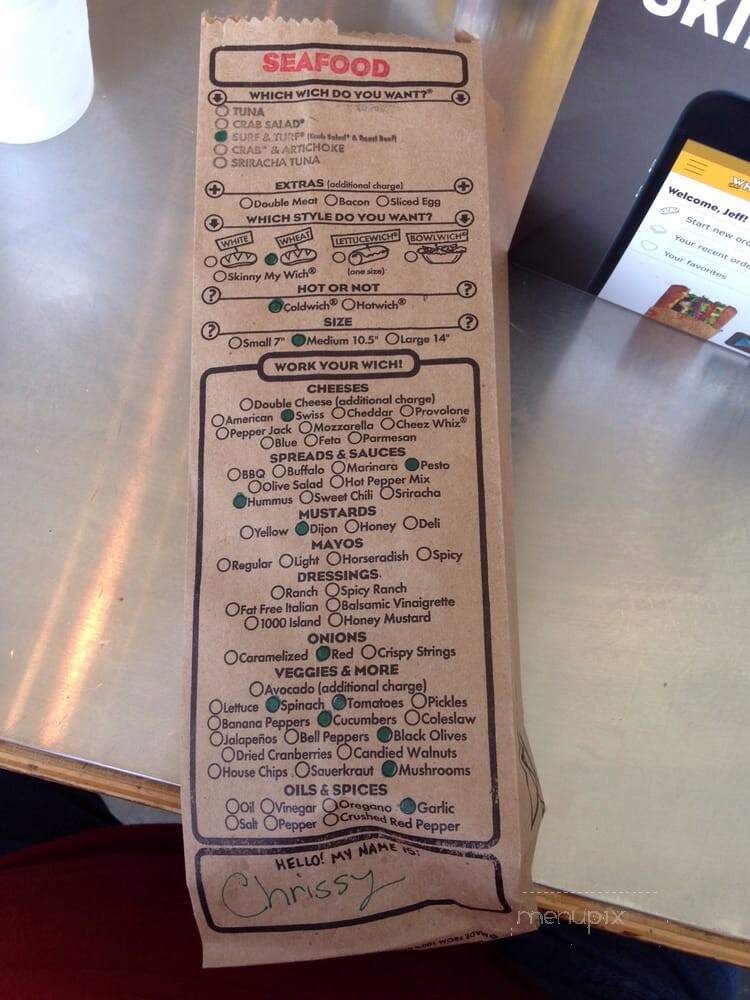 SEAFOOD
WHICH WICH DO YOU WANT?®
TUNA
CRAB SALAD*
SURF & TURF® (Crab Salad* & Roast Beef)
CRAB* & ARTICHOKE
SRIRACHA TUNA
EXTRAS (additional charge)
Double Meat Bacon Sliced Egg
WHICH STYLE DO YOU WANT?
WHITE WHEAT LETTUCEWICH® BOWLWICH®
Skinny My Wich® (one size)
HOT OR NOT
Coldwich® Hotwich®
SIZE
Small 7" Medium 10.5" Large 14"
WORK YOUR WICH!
CHEESES
Double Cheese (additional charge)
American Swiss Cheddar Provolone
Pepper Jack Mozzarella Cheez Whiz®
Blue Feta Parmesan
SPREADS & SAUCES
BBQ Buffalo Marinara Pesto
Olive Salad Hot Pepper Mix
Hummus Sweet Chili Sriracha
MUSTARDS
Yellow Dijon Honey Deli
MAYOS
Regular Light Horseradish Spicy
DRESSINGS
Ranch Spicy Ranch
Fat Free Italian Balsamic Vinaigrette
1000 Island Honey Mustard
ONIONS
Caramelized Red Crispy Strings
VEGGIES & MORE
Avocado (additional charge)
Lettuce Spinach Tomatoes Pickles
Banana Peppers Cucumbers Coleslaw
Jalapeños Bell Peppers Black Olives
Dried Cranberries Candied Walnuts
House Chips Sauerkraut Mushrooms
OILS & SPICES
Oil Vinegar Oregano Garlic
Salt Pepper Crushed Red Pepper
HELLO! MY NAME IS:
Chrissy
MADE FROM 100%
SKI
Welcome, Jeff!
Start new
Your recent
Your favorites
menupix